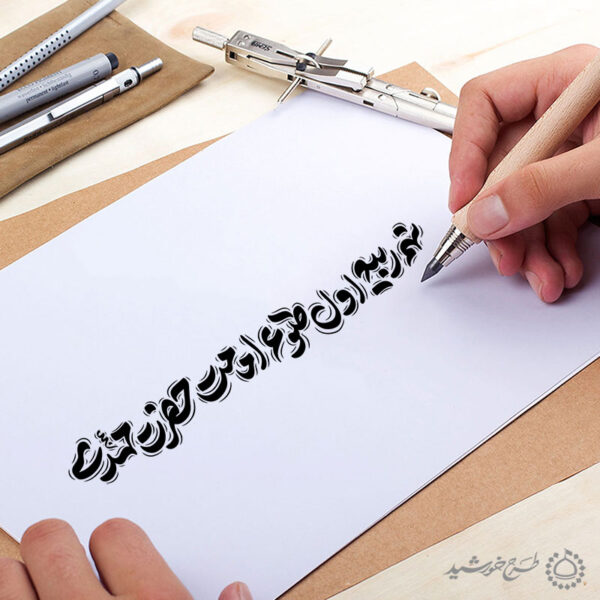 نهم ربیع اول طلوع امامت حضرت مهدی
permanent • lightfast
طرح خورشید